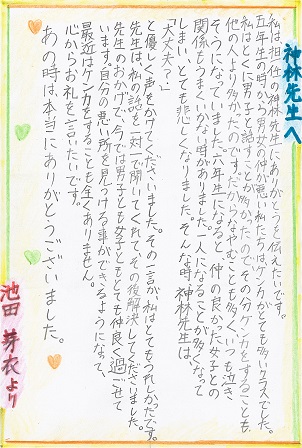 神林先生へ
私は担任の神林先生にありがとうを伝えたいです。
五年生の時から男女の仲が悪い私たちはケンカがとても多いクラスでした。
私はとくに男子と話すことが多かったのでその分ケンカをすることも
他の人より多かったのです。だからなやむことも多く、いつも泣き
そうになっていました。六年生になると、仲の良かった女子との
関係もうまくいかない時がありました。一人になることが多くなって
しまい、とても悲しくなりました。そんな時、神林先生は、
「大丈夫？」
と優しく声をかけてくださいました。その一言が、私はとてもうれしかったです。
先生は、私の話を一対一で聞いてくれて、その後解決してくださいました。
先生のおかげで、今では男子とも女子ともとても仲良く過ごせて
います。自分の悪い所を見つける事ができるようになって、
最近はケンカをすることも全くありません。
心からお礼を言いたいです。
あの時は本当にありがとうございました。
池田 芽衣より